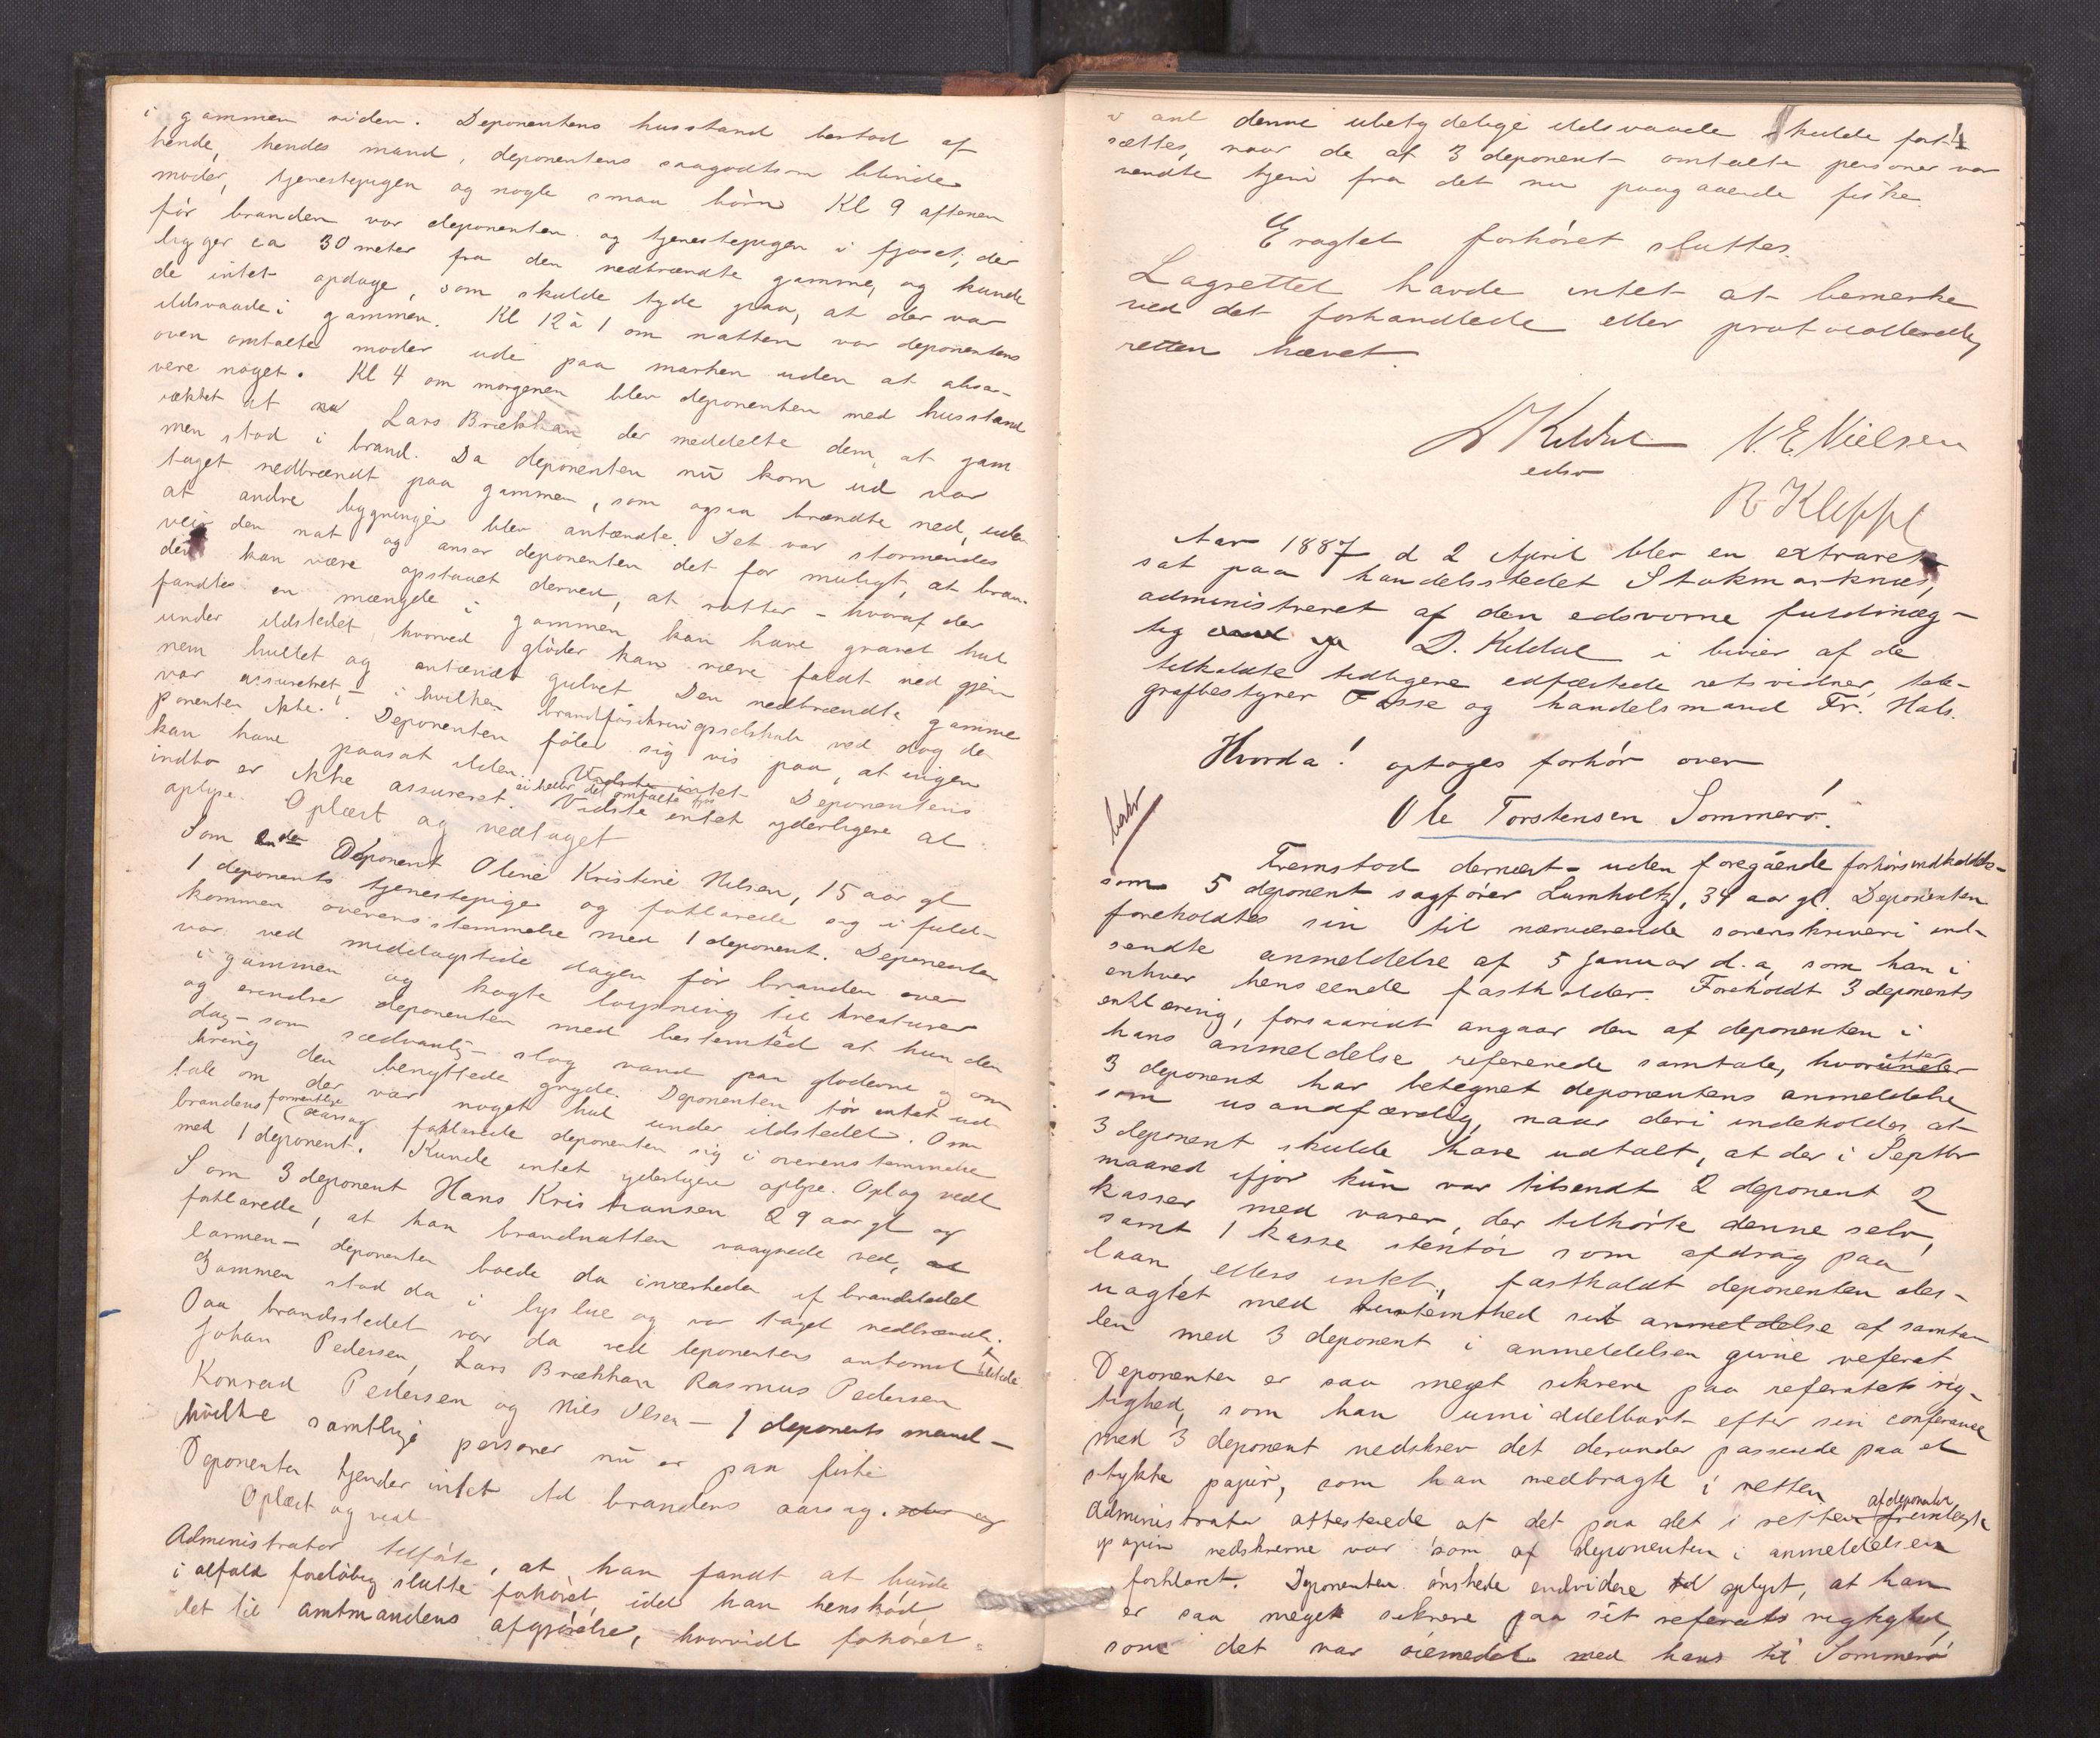 i gammen siden. Deponentens husstand bestod af
hende, hendes mand, deponentens saagodtsom blinde
moder, tjenestepigen og nogle smaa børn Kl 9 aftenen
før branden var deponenten og tjenestepigen i fjøset, der
ligger ca 30 meter fra den nedbrændte gamme, og kunde
de intet opdage, som skulde tyde paa, at der var
ildsvaade i gammen. Kl 12 à 1 om natten var deponentens
oven omtalte moder ude paa marken uden at obser-
vere noget. Kl 4 om morgenen blev deponenten med husstand
vækket af Lars Brækkhan der meddelte dem, at gam
men stod i brand. Da deponenten nu kom ud var
taget nedbrændt paa gammen, som ogsaa brændte ned, uden
at andre bygninger blev antændte. Det var stormendes
veir den nat og anser deponenten det for muligt, at bran-
den kan være opstaaet derved, at rotter – hvoraf der
fandtes en mængde i gammen kan have gravet hul
under ildstedet hvorved gløder kan være faldt ned gjen
nem hullet og antændt gulvet Den nedbrændte gamme
var assureret, – i hvilken brandforsikringsselskab ved dog de
ponenten ikke. Deponenten føler sig vis paa, at ingen
kan have paasat ilden. Deponentens
indbo er ikke assureret. ei heller det omtalte fjøs Vidste intet yderligere at
oplyse. Oplæst og vedtaget
Som 2de Deponent Oline Kristine Nilsen, 15 aar gl
1 deponents tjenestepige og forklarede sig i fuld-
kommen overensstemmelse med 1 deponent. Deponenten
var ved middagstide dagen før branden over
i gammen og kogte løypning til kreaturer
og erindrer deponenten med bestemthed at hun den
dag – som sædvanlig – slog vand paa gløderne og om
kring den benyttede gryde. Deponenten tør intet ud-
tale om der var noget hul under ildstedet. Om
brandens formentlige aarsag forklarede deponenten sig i overensstemmelse
med 1 deponent. Kunde intet yderligere oplyse. Opl og vedt
Som 3 deponent Hans Kristiansen 29 aar gl og
forklarede, at han brandnatten vaagnede ved,
larmen – deponenten boede da i nærheden af brandstedet
Gammen stod da i lys lue og var taget nedbrændt.
Paa brandstedet var da ved deponentens ankomst tilstede
Johan Pedersen, Lars Brækkhan Rasmus Pedersen
Konrad Pedersen og Nils Olsen – 1 deponents mand –
hvilke samtlige personer nu er paa fiske
Deponenten kjender intet til brandens aarsag.
Oplæst og vedt
Administrator tilførte, at han fandt at burde
i alfald foreløbig slutte forhøret, idet han henskød
det til amtmandens afgjørelse, hvorvidt forhøret
4
i anl denne ubetydelige ildsvaade skulde fort-
sættes, naar de af 3 deponent omtalte personer var
vendte hjem fra det nu paagaaende fiske.
Eragtet forhøret sluttes.
Lagrettet havde intet at bemerke
ved det forhandlede eller protocollerede,
retten hævet.
D Kildal N. E. Nielsen
edsv
R Kleppe
Aar 1887 d 2 April blev en extraret
sat paa handelsstedet Stokmarknæs,
administreret af den edsvorne fuldmæg-
tig D. Kildal i bivær af de
tilkaldte tidligere edfæstede retsvidner, tele-
grafbestyrer Fasse og handelsmand Fr. Hals.
Hvorda! optoges forhør over
Ole Torstensen Sommerø.
Fremstod dernæst – uden foregående forhørsindkaldelse –
som 5 deponent sagfører Lumholtz, 34 aar gl. Deponenten
foreholdtes sin til nærværende sorenskriveri ind-
sendte anmeldelse af 5 Januar d. a, som han i
enhver henseende fastholder. Foreholdt 3 deponents
erklæring, forsaavidt angaar den af deponenten i
hans anmeldelse refererede samtale, hvorefter
3 deponent har betegnet deponentens anmeldelse
som usandfærdig, naar deri indeholdes, at
3 deponent skulde have udtalt, at der i Septbr
maaned ifjor kun var tilsendt 2 deponent 2
kasser med varer, der tilhørte denne selv,
samt 1 kasse stentøi som afdrag paa
laan, ellers intet, fastholdt deponenten des-
uagtet med bestemthed sit anmeldelse af samta-
len med 3 deponent i anmeldelsen givne referat
Deponenten er saa meget sikrere paa referatets rig-
tighed, som han umiddelbart efter sin conferance
med 3 deponent nedskrev det derunder passerede paa et
stykke papir, som han medbragte i retten
Administrator attesterede at det paa det i retten af deponenten fremlagte
papir nedskrevne var som af deponenten i anmeldelsen
forklaret. Deponenten ønskede endvidere oplyst, at han
er saa meget sikrere paa sit referats rigtighed,
som det var øiemedet med hans til Sommerø